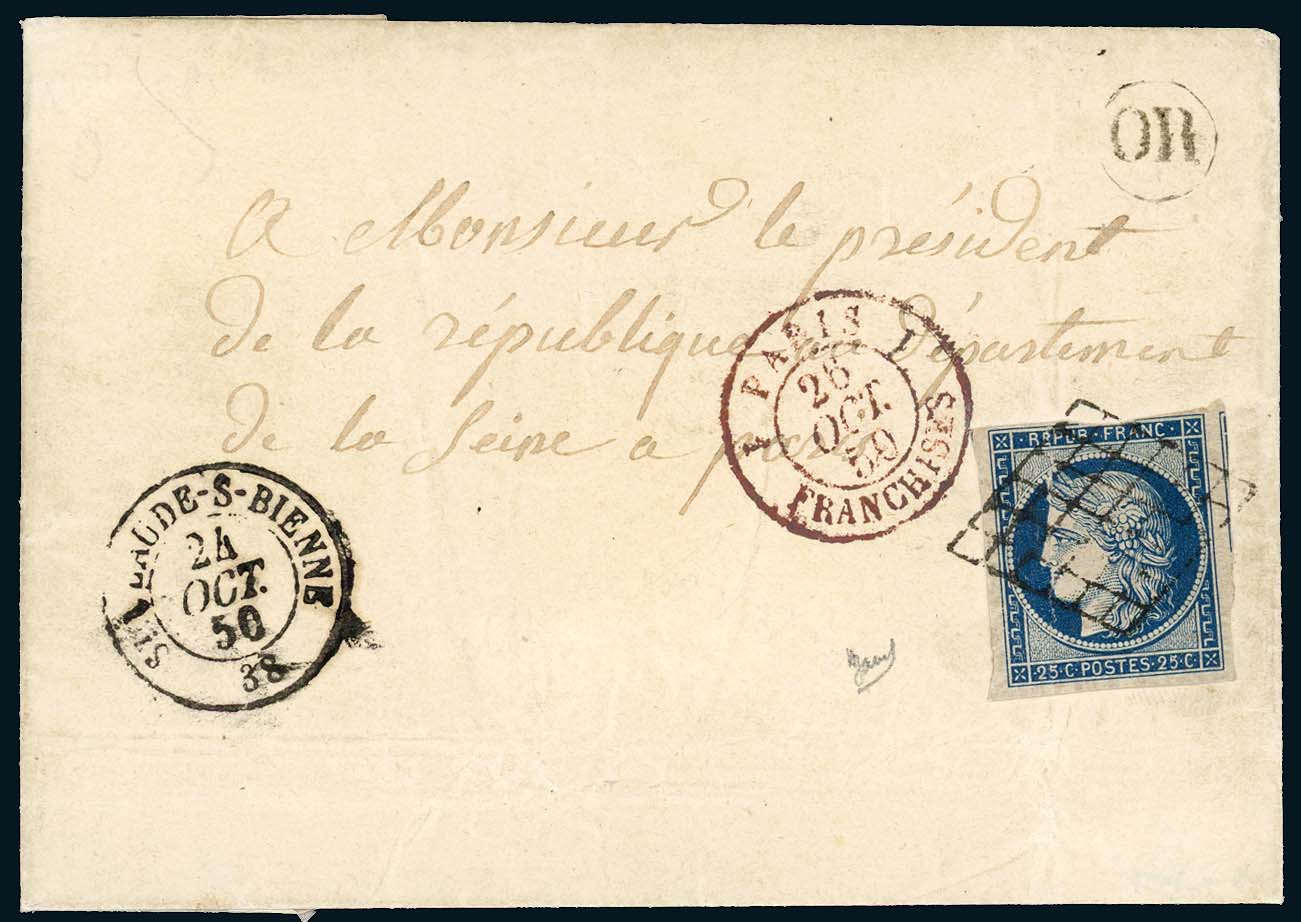 OR
A Monsieur le président
de la république au Département
de la Seine a paris
PARIS
26
OCT.
50
FRANCHISES
ST LAUDE-S-BIENNE
24
OCT.
50
38
REPUB·FRANC·
·25·C·POSTES·25·C·